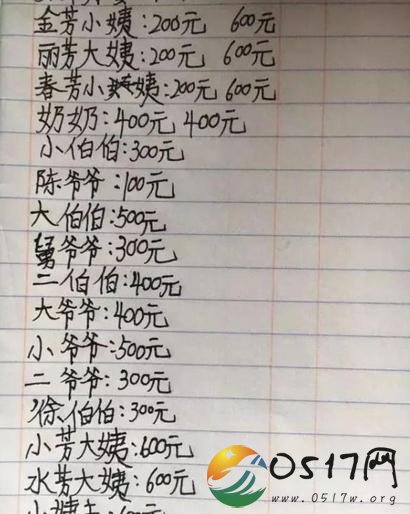 金芳小姨:200元 600元
丽芳大姨:200元 600元
春芳小姨:200元 600元
奶奶:400元 400元
小伯伯:300元
陈爷爷:100元
大伯伯:500元
舅爷爷:300元
二伯伯:400元
大爷爷:400元
小爷爷:500元
二爷爷:300元
徐伯伯:300元
小芳大姨:600元
水芳大姨:600元
0517网
www.0517w.org